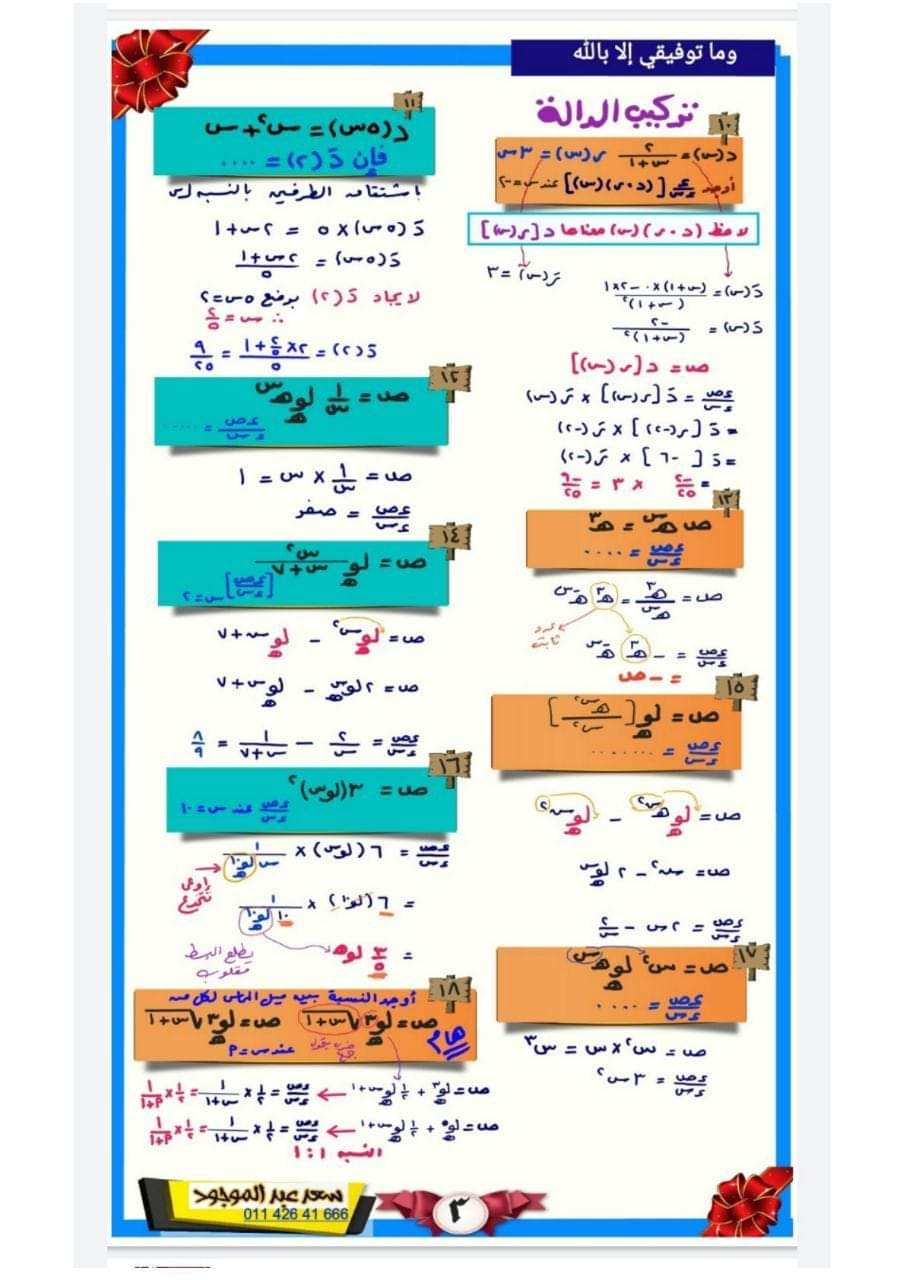 وما توفيقي إلا بالله
تركيب الدالة
١٠
د(س) = ٢/(س+١) ر(س) = ٣س
أوجد ء/ءس [(د∘ر)(س)] عند س = -٢
لاحظ (د∘ر)(س) معناها د[ر(س)]
رَ(س) = ٣
دَ(س) = ((س+١)×٠ - ٢×١)/(س+١)²
دَ(س) = -٢/(س+١)²
ص = د[ر(س)]
ءص/ءس = دَ[ر(س)] × رَ(س)
= دَ[ر(-٢)] × رَ(-٢)
= دَ[-٦] × رَ(-٢)
= -٢/٢٥ × ٣ = -٦/٢٥
١١
د(٥س) = س² + س
فإن دَ(٢) = ....
باشتقاق الطرفين بالنسبة لـ س
دَ(٥س) × ٥ = ٢س + ١
دَ(٥س) = (٢س+١)/٥
لايجاد دَ(٢) بوضع ٥س = ٢
∴ س = ٢/٥
دَ(٢) = (٢×٢/٥ + ١)/٥ = ٩/٢٥
١٢
ص = ١/س لو_هـ هـ^س
ءص/ءس = ....
ص = ١/س × س = ١
ءص/ءس = صفر
١٣
ص هـ^س = هـ^٣
ءص/ءس = ....
ص = هـ^٣/هـ^س = هـ^٣ هـ^-س
عدد ثابت
ءص/ءس = - هـ^٣ هـ^-س
= - ص
١٤
ص = لو_هـ س²/(س+٧)
[ءص/ءس] س=٢
ص = لو_هـ س² - لو_هـ س+٧
ص = ٢ لو_هـ س - لو_هـ س+٧
ءص/ءس = ٢/س - ١/(س+٧) = ٨/٩
١٥
ص = لو_هـ [هـ^س²/س²]
ءص/ءس = .......
ص = لو_هـ هـ^س² - لو_هـ س²
ص = س² - ٢ لو_هـ س
ءص/ءس = ٢س - ٢/س
١٦
ص = ٣(لو س)²
ءص/ءس عند س = ١٠
ءص/ءس = ٦(لو س) × ١/(س لو_هـ ١٠)
= ٦(لو ١٠) × ١/(١٠ لو_هـ ١٠)
= ٣/٥ لو هـ
يطلع البسط
مقلوب
١٧
ص = س² لو_هـ هـ^س
ءص/ءس = ....
ص = س² × س = س³
ءص/ءس = ٣س²
١٨
أوجد النسبة بين ميل المماس لكل من
ص = لو_هـ ٣√(س+١) ص = لو_هـ ٥√(س+١)
هام
عند س = م
ص = لو_هـ ٣ + ١/٢ لو_هـ س+١ ← ءص/ءس = ١/٢ × ١/(س+١) = ١/٢ × ١/(م+١)
ص = لو_هـ ٥ + ١/٢ لو_هـ س+١ ← ءص/ءس = ١/٢ × ١/(س+١) = ١/٢ × ١/(م+١)
النسبة ١ : ١
سعد عبد الموجود
011 426 41 666
٣